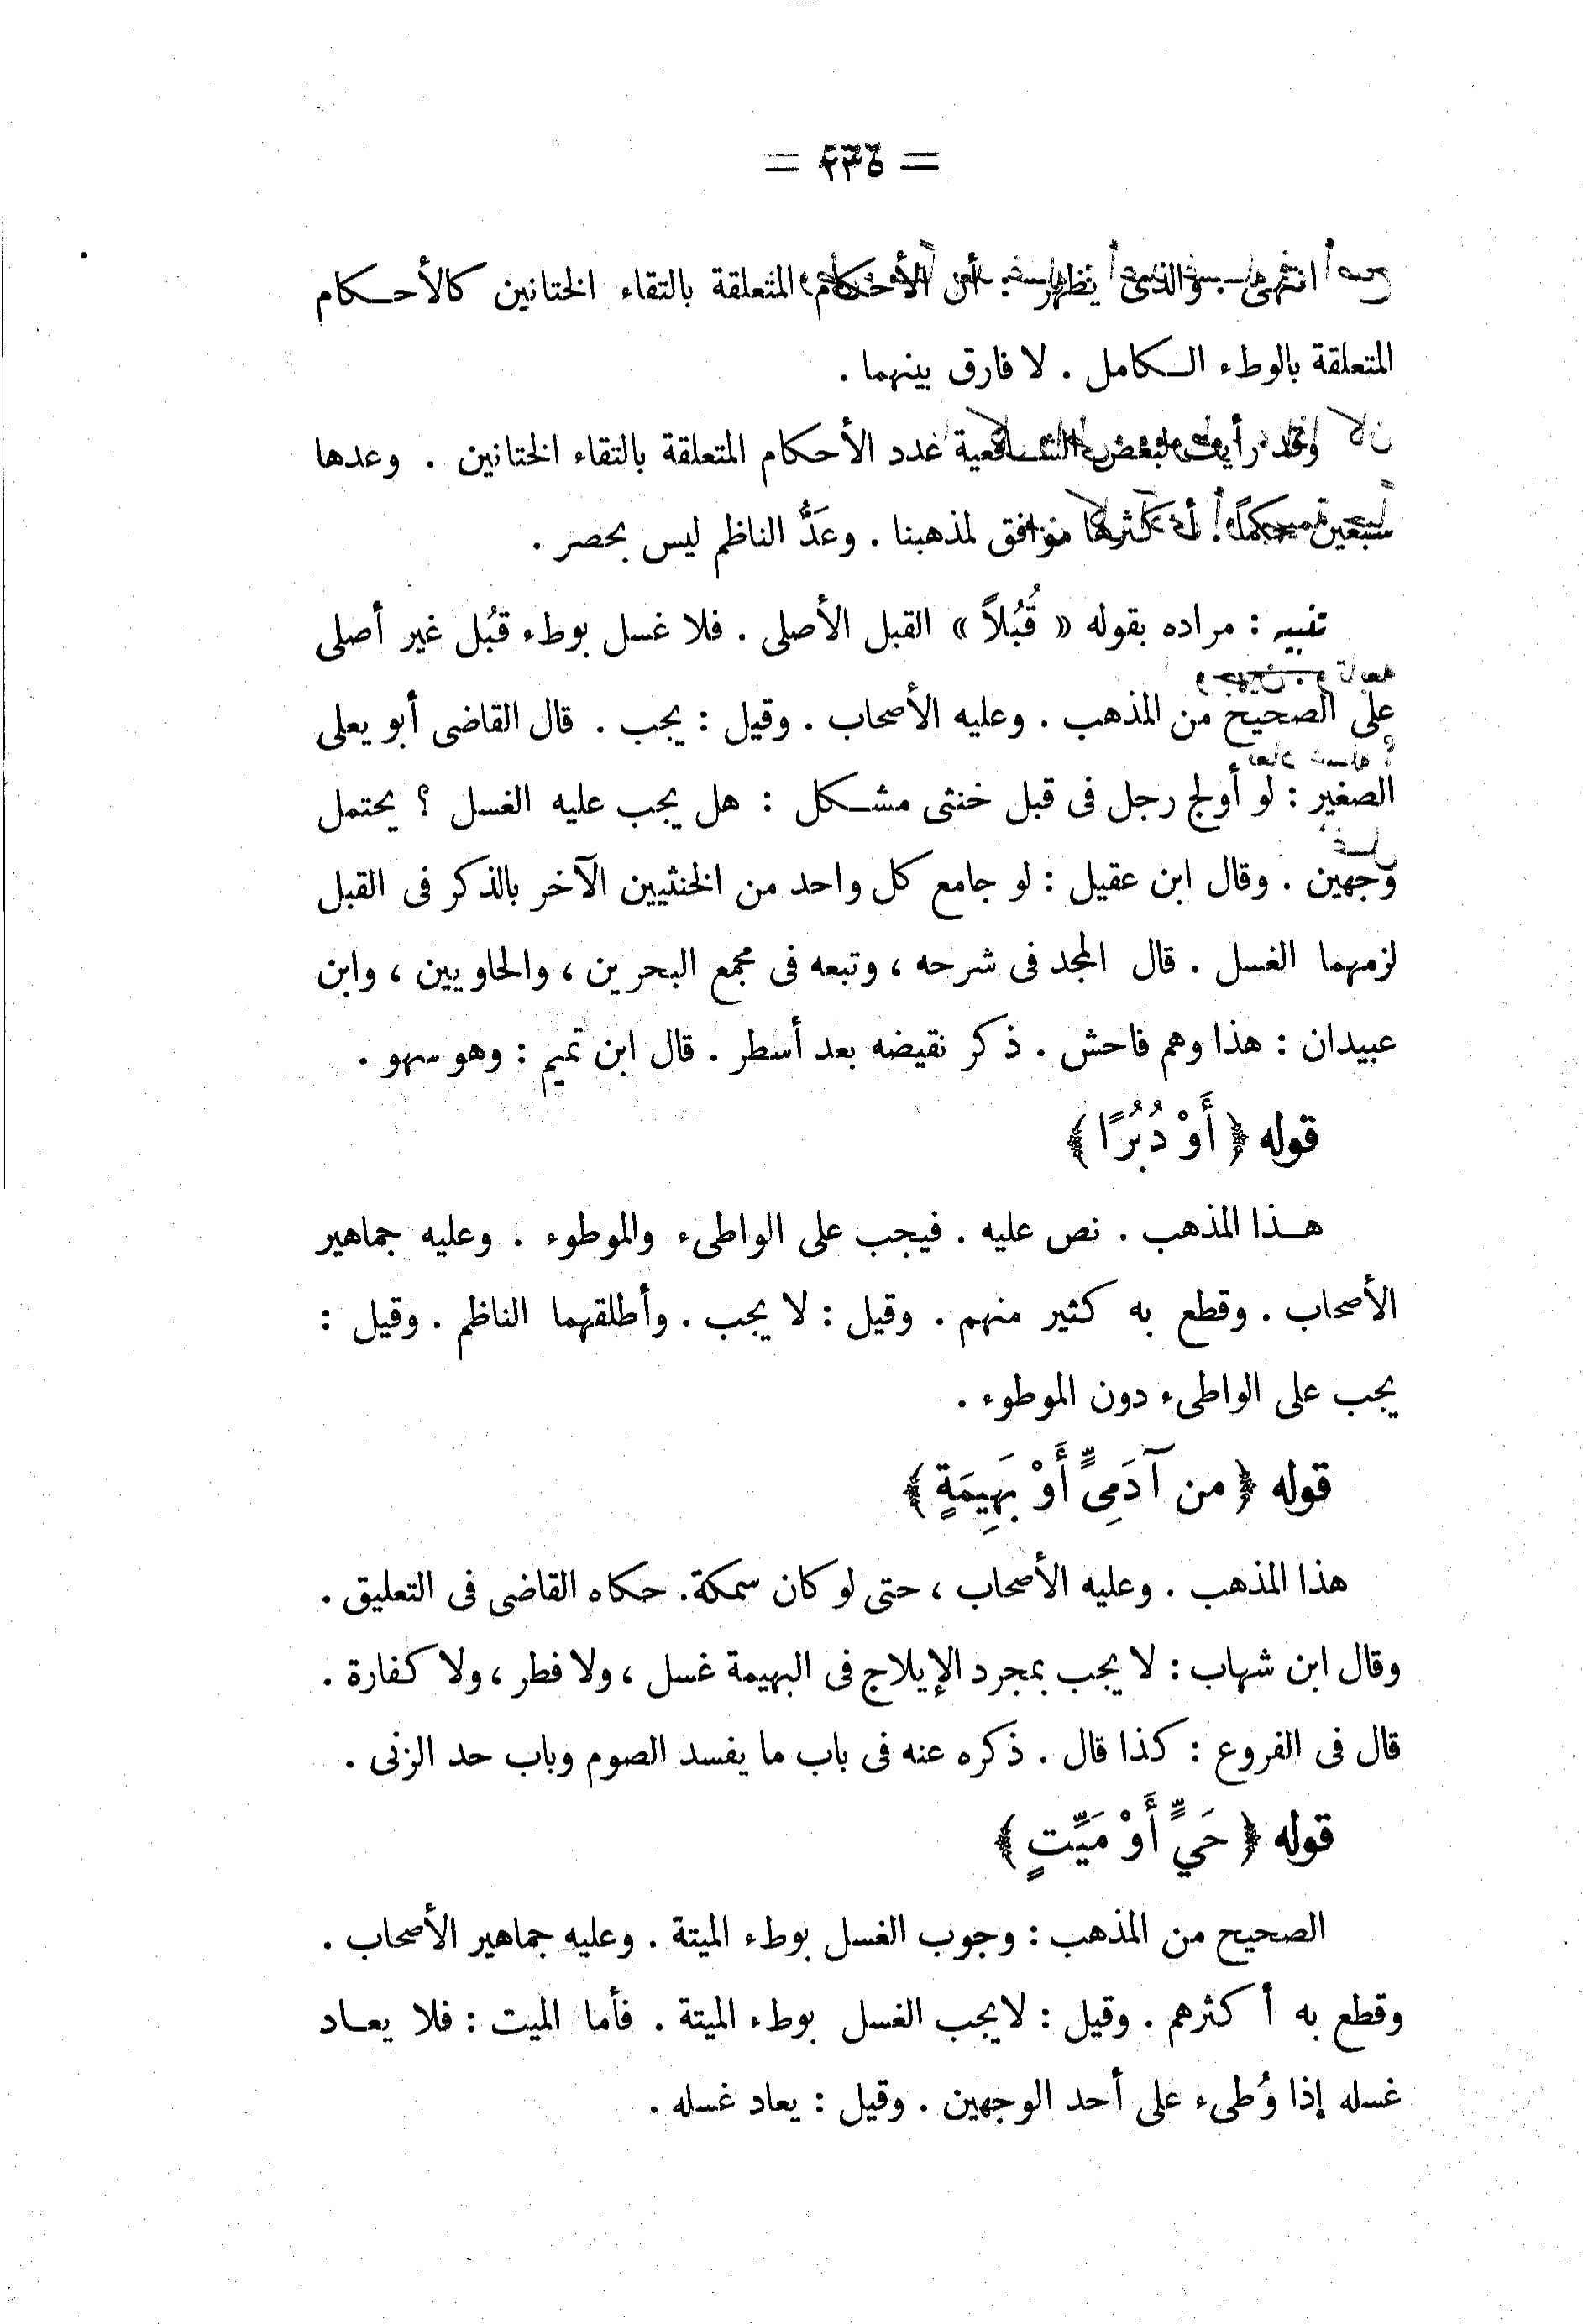 انتهى . والذى يظهر : أن الأحكام المتعلقة بالتقاء الختانين كالأحكام
المتعلقة بالوطء الكامل . لا فارق بينهما .
وقد رأيت لبعض الشافعية عدد الأحكام المتعلقة بالتقاء الختانين . وعدها
سبعين حكماً . أكثرها موافق لمذهبنا . وعَدُّ الناظم ليس بحصر .
تنبيه : مراده بقوله « قُبُلاً » القبل الأصلى . فلا غسل بوطء قبُل غير أصلى
على الصحيح من المذهب . وعليه الأصحاب . وقيل : يجب . قال القاضى أبو يعلى
الصغير : لو أولج رجل فى قبل خنثى مشكل : هل يجب عليه الغسل ؟ يحتمل
وجهين . وقال ابن عقيل : لو جامع كل واحد من الخنثيين الآخر بالذكر فى القبل
لزمهما الغسل . قال المجد فى شرحه ، وتبعه فى مجمع البحرين ، والحاويين ، وابن
عبيدان : هذا وهم فاحش . ذكر نقيضه بعد أسطر . قال ابن تميم : وهو سهو .
قوله ﴿ أَوْ دُبُرًا ﴾
هذا المذهب . نص عليه . فيجب على الواطىء والموطوء . وعليه جماهير
الأصحاب . وقطع به كثير منهم . وقيل : لا يجب . وأطلقهما الناظم . وقيل :
يجب على الواطىء دون الموطوء .
قوله ﴿ من آدَمِىٍّ أَوْ بَهِيمَةٍ ﴾
هذا المذهب . وعليه الأصحاب ، حتى لو كان سمكة . حكاه القاضى فى التعليق .
وقال ابن شهاب : لا يجب بمجرد الإيلاج فى البهيمة غسل ، ولا فطر ، ولا كفارة .
قال فى الفروع : كذا قال . ذكره عنه فى باب ما يفسد الصوم وباب حد الزنى .
قوله ﴿ حَيٍّ أَوْ مَيِّتٍ ﴾
الصحيح من المذهب : وجوب الغسل بوطء الميتة . وعليه جماهير الأصحاب .
وقطع به أكثرهم . وقيل : لا يجب الغسل بوطء الميتة . فأما الميت : فلا يعاد
غسله إذا وُطىء على أحد الوجهين . وقيل : يعاد غسله .